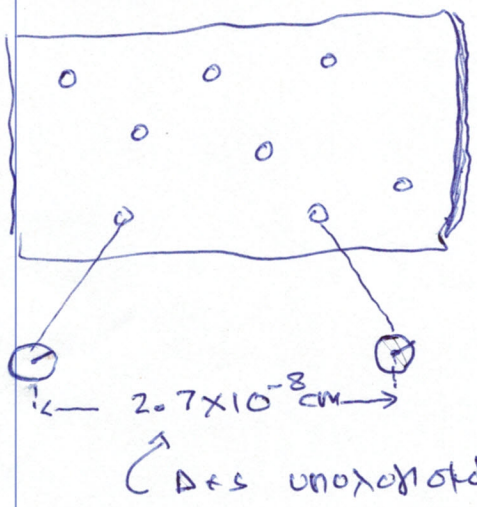 2.7×10⁻⁸ cm
Δες υπολογισμό